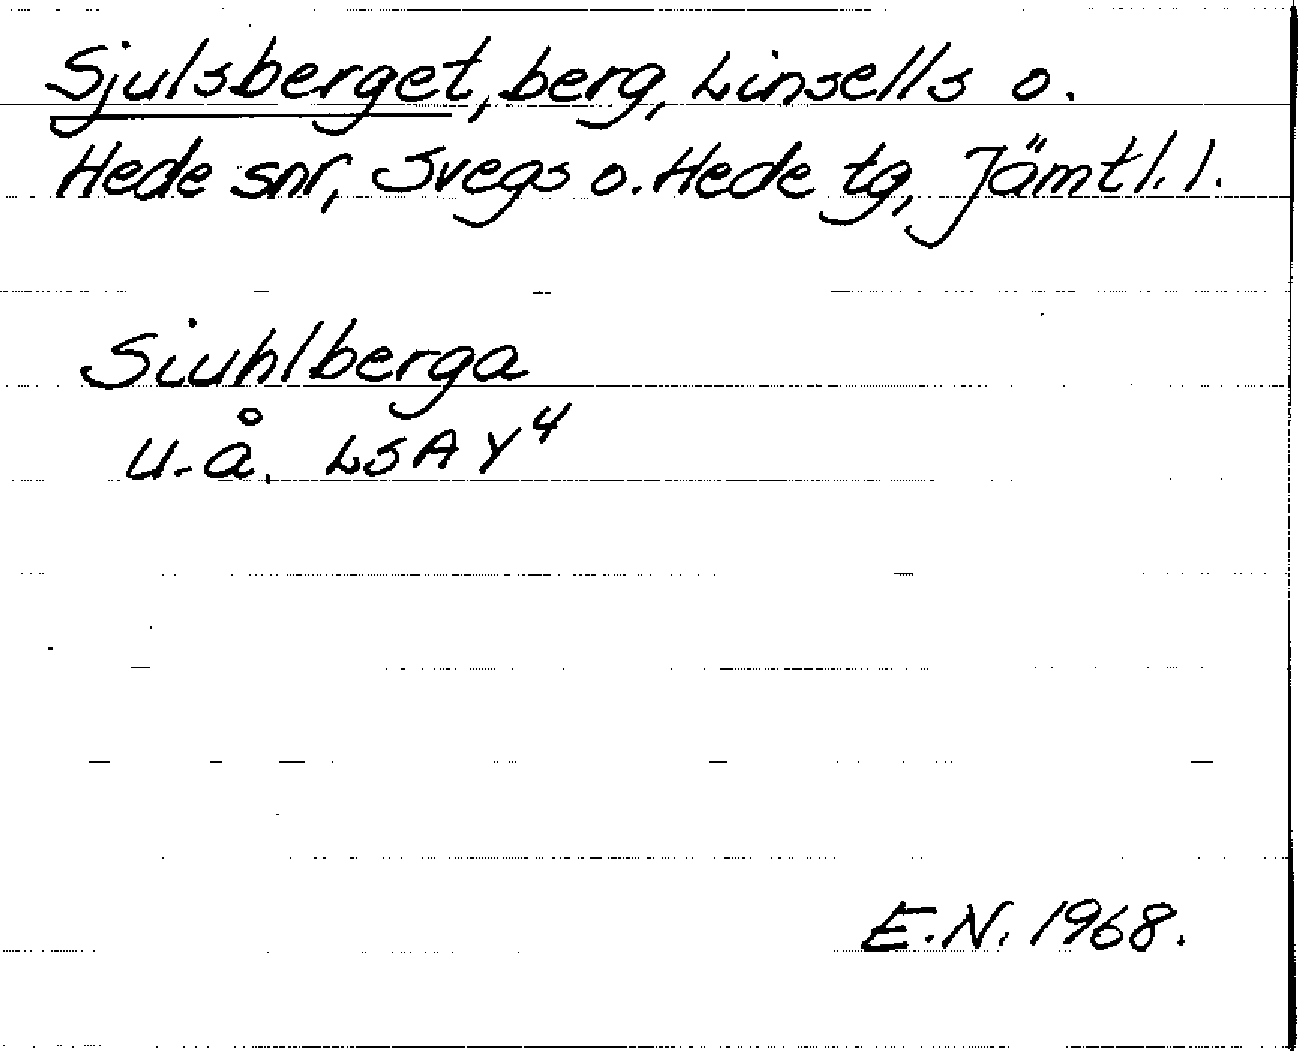 Sjulsberget, berg, Linsells o.
Hede snr, Svegs o. Hede tg, Jämtl. l.
Siuhlberga
u.å. LSA Y4
E.N. 1968.